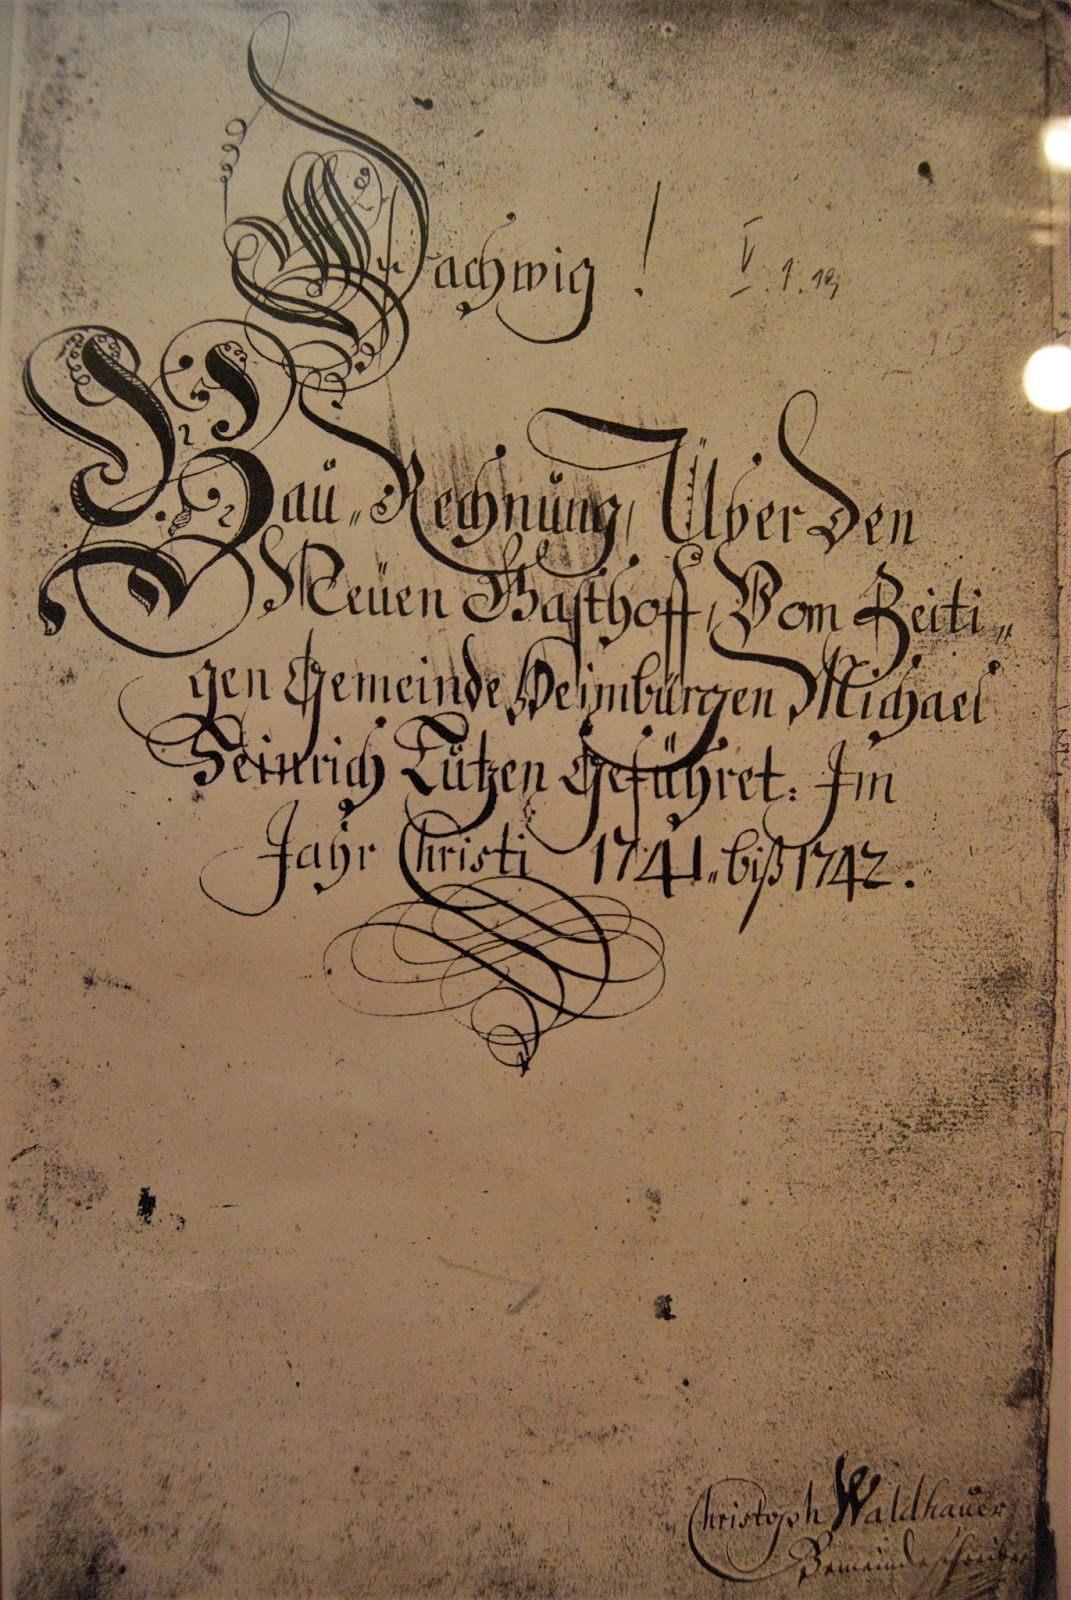 Dachwig!
Bau„ Rechnung, Über den
Neüen Gasthoff, Vom Zeiti„
gen Gemeinde Heimbürgen Michael
Heinrich Tützen Geführet: Im
Jahr Christi 1741„ biß 1742.
Christoph Waldhauer
Gemeindeschreiber